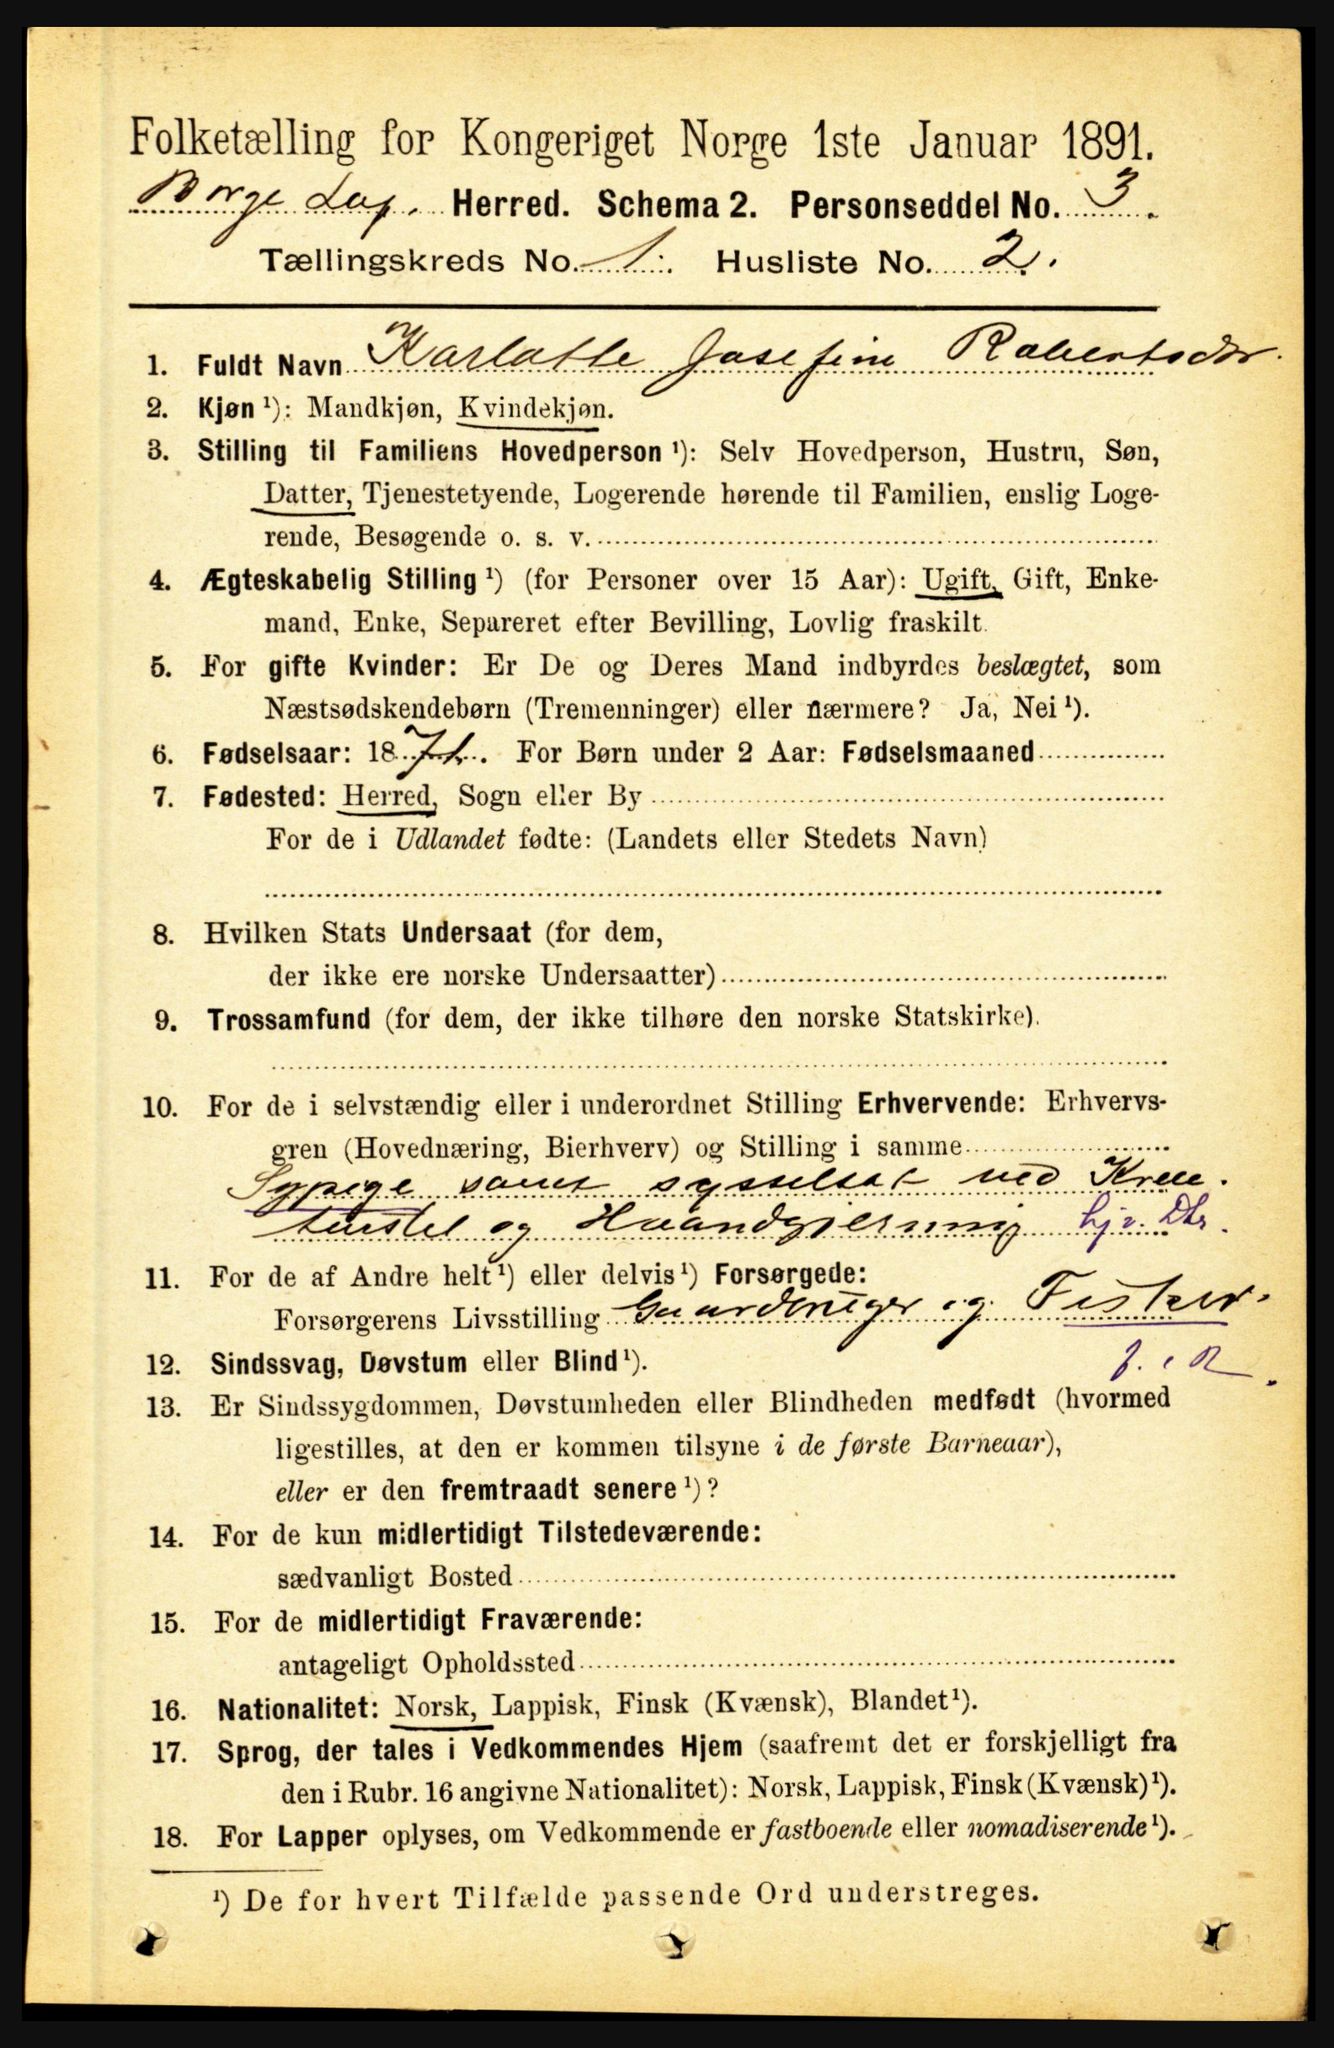 Folketælling for Kongeriget Norge 1ste Januar 1891.
Borge Lof. Herred. Schema 2. Personseddel No. 3.
Tællingskreds No. 1. Husliste No. 2.
1. Fuldt Navn Karlotte Josefine Robertsdtr.
2. Kjøn ¹): Mandkjøn, Kvindekjøn.
3. Stilling til Familiens Hovedperson ¹): Selv Hovedperson, Hustru, Søn,
Datter, Tjenestetyende, Logerende hørende til Familien, enslig Loge-
rende, Besøgende o. s. v.
4. Ægteskabelig Stilling ¹) (for Personer over 15 Aar): Ugift, Gift, Enke-
mand, Enke, Separeret efter Bevilling, Lovlig fraskilt.
5. For gifte Kvinder: Er De og Deres Mand indbyrdes beslægtet, som
Næstsødskendebørn (Tremenninger) eller nærmere? Ja, Nei ¹).
6. Fødselsaar: 187 . For Børn under 2 Aar: Fødselsmaaned
7. Fødested: Herred, Sogn eller By
For de i Udlandet fødte: (Landets eller Stedets Navn)
8. Hvilken Stats Undersaat (for dem,
der ikke ere norske Undersaatter)
9. Trossamfund (for dem, der ikke tilhøre den norske Statskirke).
10. For de i selvstændig eller i underordnet Stilling Erhvervende: Erhvervs-
gren (Hovednæring, Bierhverv) og Stilling i samme
Sypige samt sysselsat med Krea-
turstel og Haandgjerning hjv. Dtr.
11. For de af Andre helt ¹) eller delvis ¹) Forsørgede:
Forsørgerens Livsstilling Gaardbruger og Fisker.
12. Sindssvag, Døvstum eller Blind ¹).
13. Er Sindssygdommen, Døvstumheden eller Blindheden medfødt (hvormed
ligestilles, at den er kommen tilsyne i de første Barneaar),
eller er den fremtraadt senere ¹)?
14. For de kun midlertidigt Tilstedeværende:
sædvanligt Bosted
15. For de midlertidigt Fraværende:
antageligt Opholdssted
16. Nationalitet: Norsk, Lappisk, Finsk (Kvænsk), Blandet ¹).
17. Sprog, der tales i Vedkommendes Hjem (saafremt det er forskjelligt fra
den i Rubr. 16 angivne Nationalitet): Norsk, Lappisk, Finsk (Kvænsk) ¹).
18. For Lapper oplyses, om Vedkommende er fastboende eller nomadiserende ¹).
¹) De for hvert Tilfælde passende Ord understreges.